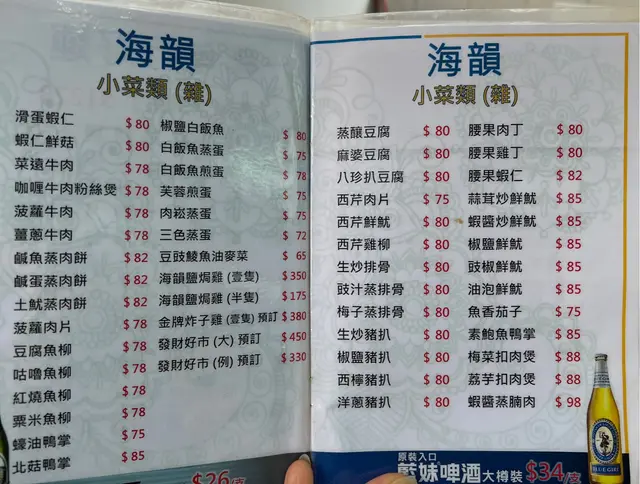 海韻
小菜類 (雜)
滑蛋蝦仁 $80
蝦仁鮮菇 $80
菜遠牛肉 $78
咖喱牛肉粉絲煲 $78
菠蘿牛肉 $78
薑蔥牛肉 $78
鹹魚蒸肉餅 $82
鹹蛋蒸肉餅 $82
土魷蒸肉餅 $82
菠蘿肉片 $78
豆腐魚柳 $78
咕嚕魚柳 $78
紅燒魚柳 $78
粟米魚柳 $78
蠔油鴨掌 $75
北菇鴨掌 $85
椒鹽白飯魚 $80
白飯魚蒸蛋 $75
白飯魚煎蛋 $78
芙蓉煎蛋 $75
肉崧蒸蛋 $75
三色蒸蛋 $72
豆豉鯪魚油麥菜 $65
海韻鹽焗雞 (壹隻) $350
海韻鹽焗雞 (半隻) $175
金牌炸子雞 (壹隻) 預訂 $380
發財好市 (大) 預訂 $450
發財好市 (例) 預訂 $330
$26/支
海韻
小菜類 (雜)
蒸釀豆腐 $80
麻婆豆腐 $80
八珍扒豆腐 $80
西芹肉片 $75
西芹鮮魷 $80
西芹雞柳 $80
生炒排骨 $80
豉汁蒸排骨 $80
梅子蒸排骨 $80
生炒豬扒 $80
椒鹽豬扒 $80
西檸豬扒 $80
洋蔥豬扒 $80
腰果肉丁 $80
腰果雞丁 $80
腰果蝦仁 $82
蒜茸炒鮮魷 $85
蝦醬炒鮮魷 $85
椒鹽鮮魷 $85
豉椒鮮魷 $85
油泡鮮魷 $85
魚香茄子 $75
素鮑魚鴨掌 $85
梅菜扣肉煲 $88
荔芋扣肉煲 $88
蝦醬蒸腩肉 $98
原裝入口
藍妹啤酒 大樽裝 $34/支
BLUE GIRL